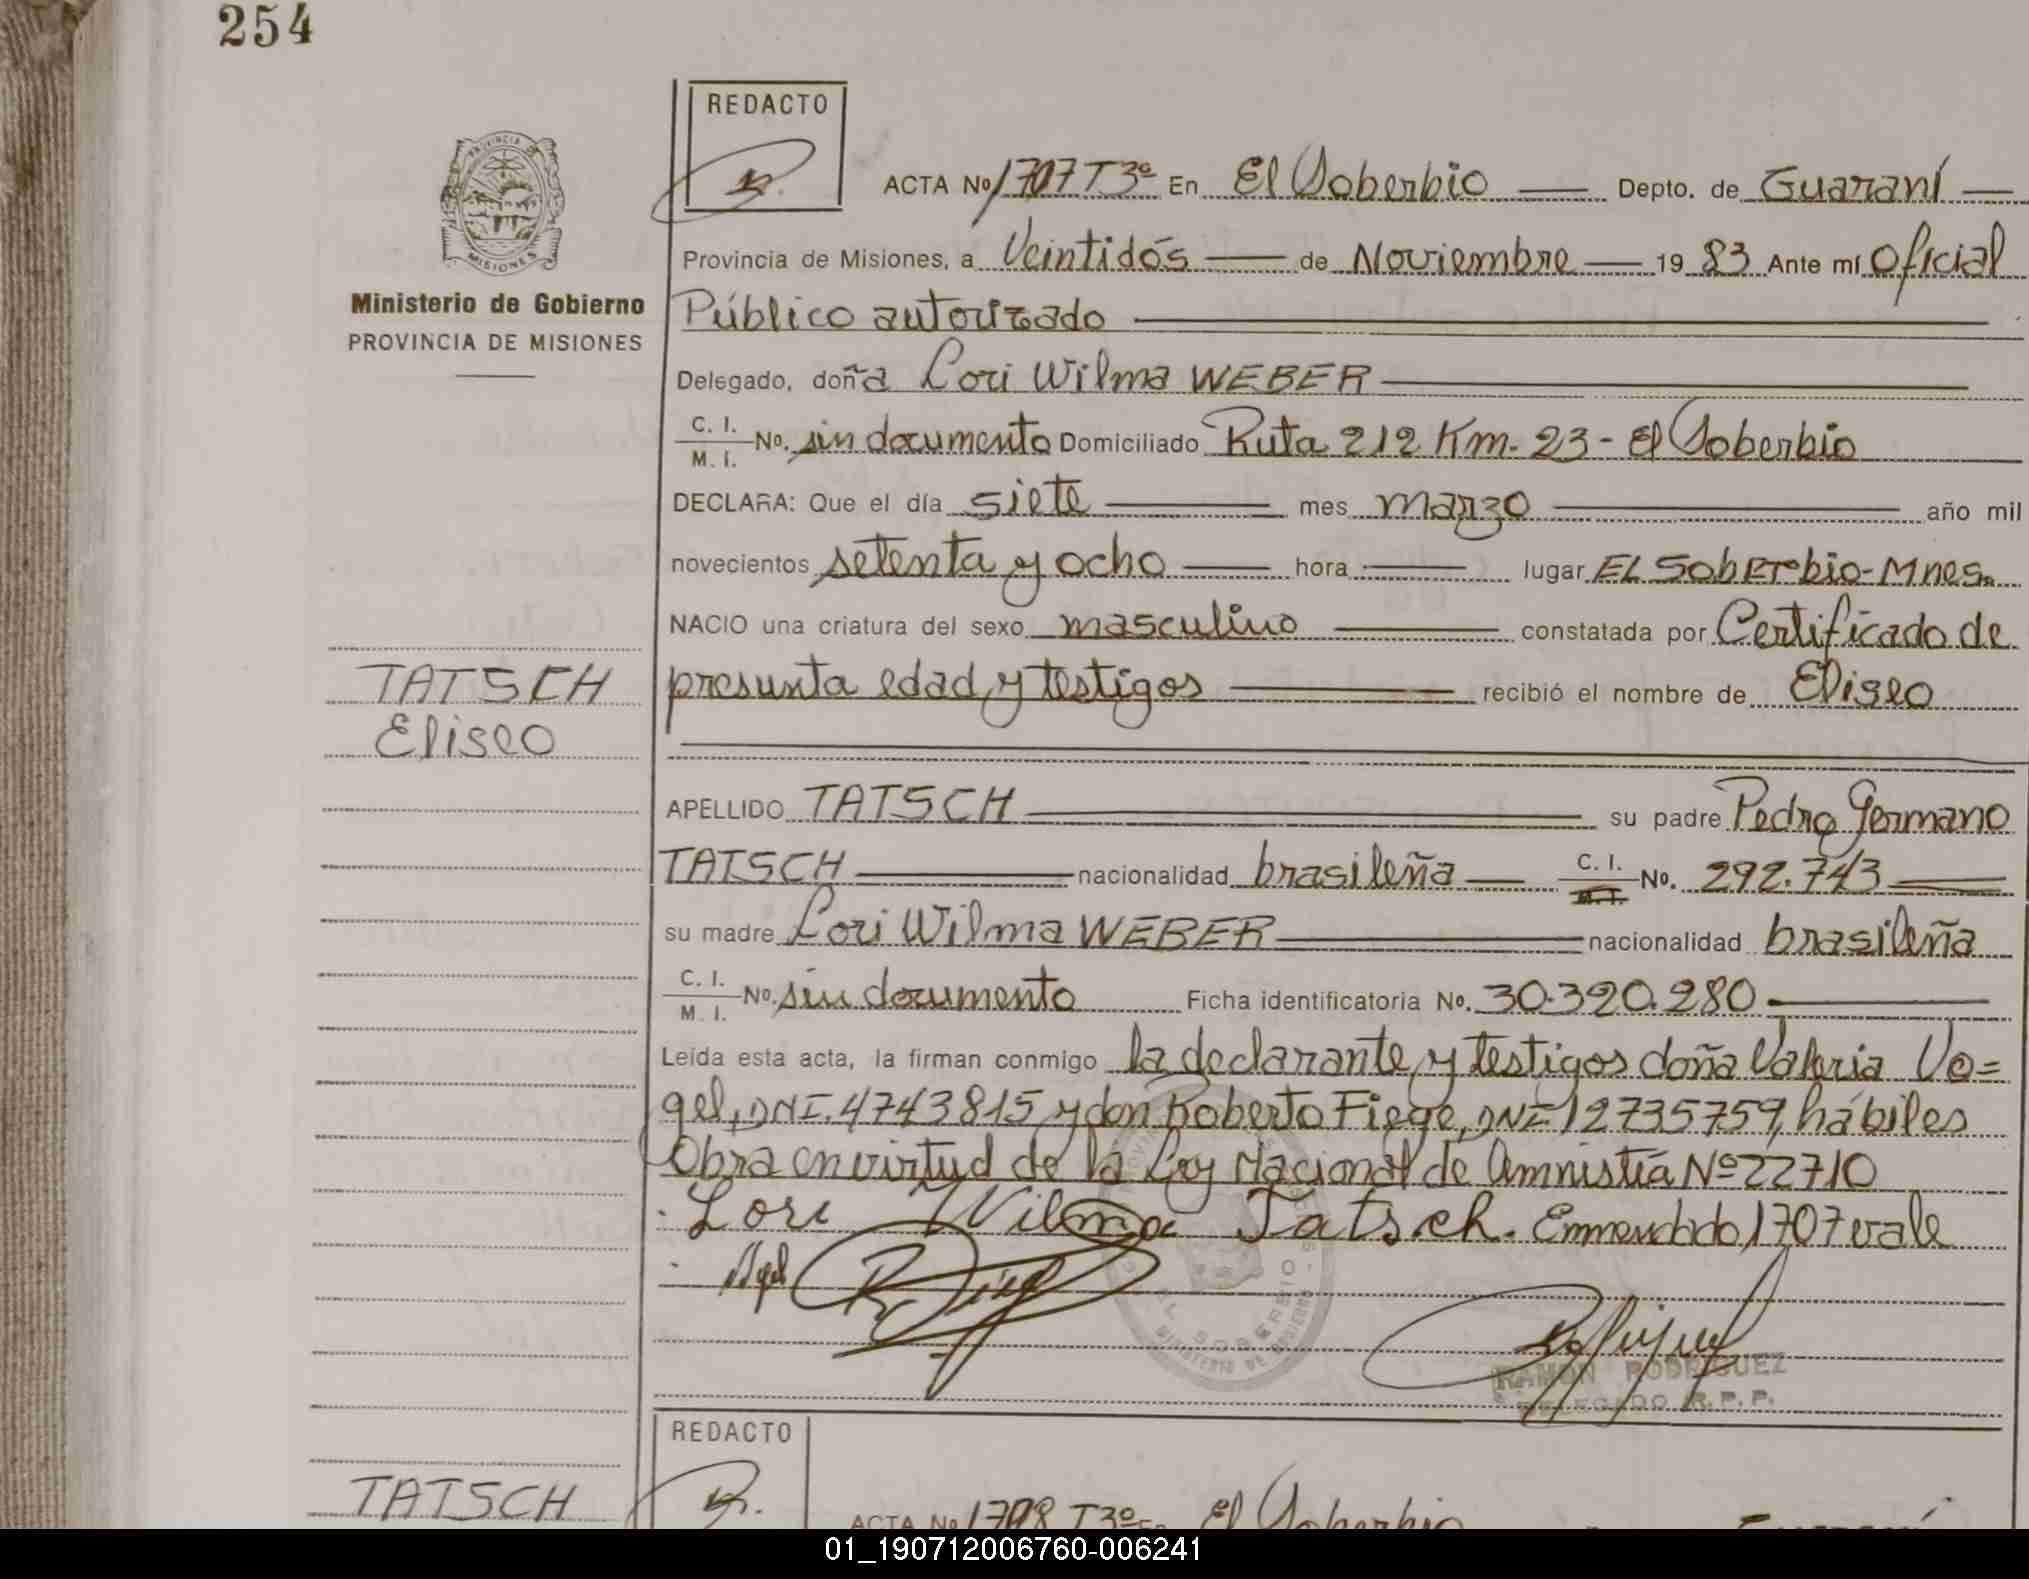 254
REDACTO
ACTA No 1707 T3º En El Soberbio Depto. de Guaraní
PROVINCIA DE
MISIONES
Provincia de Misiones, a Veintidós de Noviembre 19 83 Ante mí Oficial
Ministerio de Gobierno
PROVINCIA DE MISIONES
Público autorizado
Delegado, doña Lori Wilma WEBER
C. I.
M. I.
No. sin documento Domiciliado Ruta 212 Km. 23 - El Soberbio
DECLARA: Que el día siete mes marzo año mil
novecientos setenta y ocho hora lugar EL SobErbio-Mnes.
NACIO una criatura del sexo masculino constatada por Certificado de
presunta edad y testigos recibió el nombre de Eliseo
TATSCH
Eliseo
APELLIDO TATSCH su padre Pedro Germano
TATSCH nacionalidad brasileña C. I. M. I. No. 292.743
su madre Lori Wilma WEBER nacionalidad brasileña
C. I.
M. I.
No. sin documento Ficha identificatoria No. 30.320.280
Leída esta acta, la firman conmigo la declarante y testigos doña Valeria Vo=
gel, DNI. 4743815 y don Roberto Fiege, DNI 12735759, hábiles
Obra en virtud de la Ley Nacional de Amnistía Nº 22710
Lori Wilma Tatsch. Enmendado 1707 vale
EL SOBERBIO
MINISTERIO DE GOBIERNO
RAMON RODRIGUEZ
DELEGADO R.P.P.
REDACTO
TATSCH
ACTA No 1708 T3º En El Soberbio
01_190712006760-006241